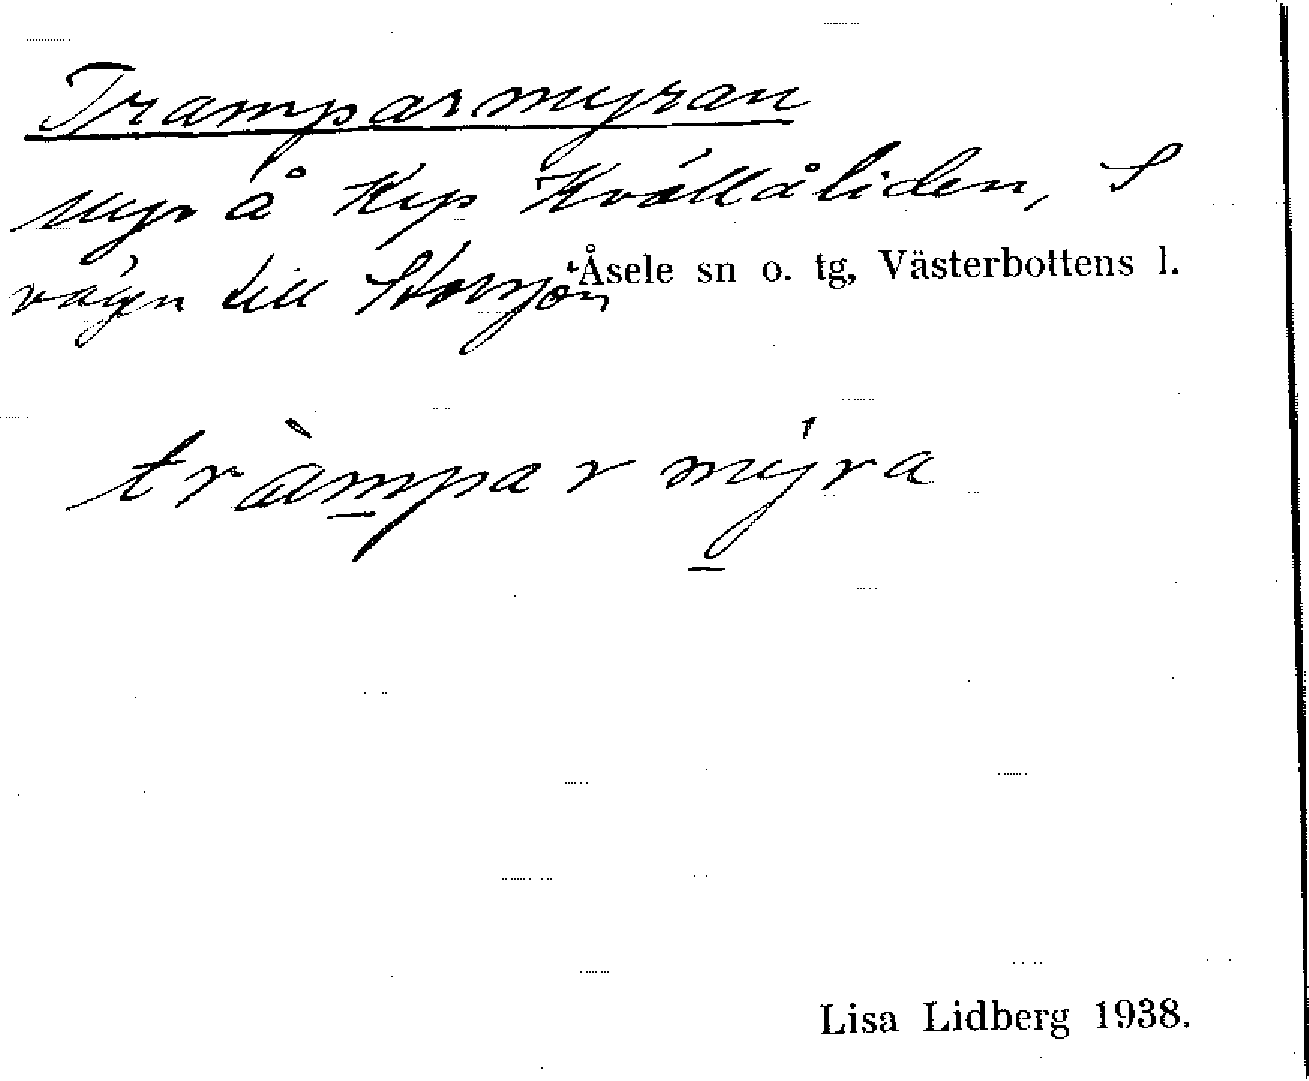 Tramparmyran
Myr å Krp Kvällåliden, S
vägn till Storsjön
Åsele sn o. tg, Västerbottens l.
tràmparmýra
Lisa Lidberg 1938.